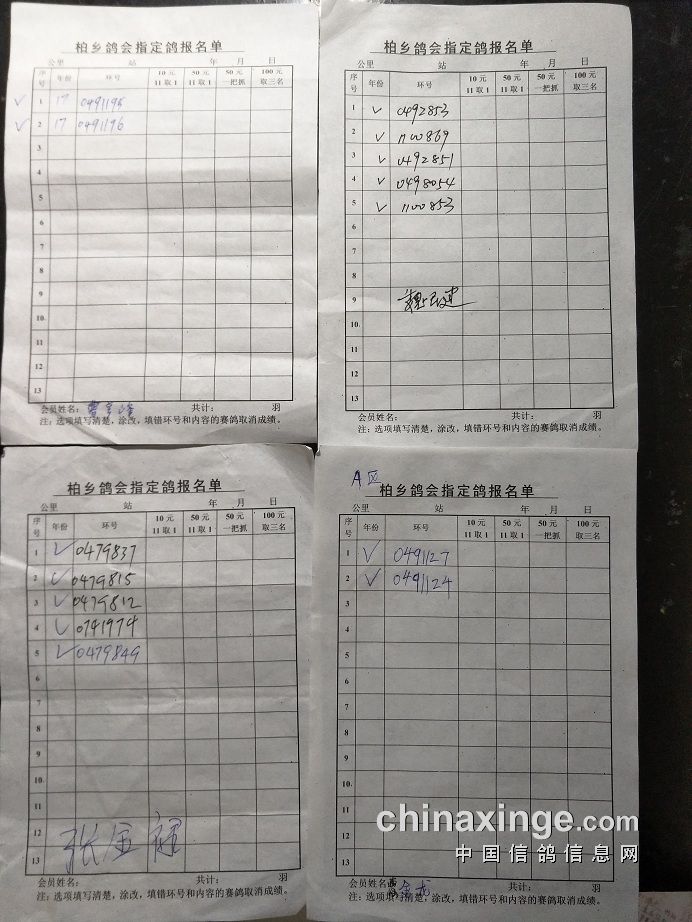 柏乡鸽会指定鸽报名单
公里 站 年 月 日
序号 年份 环号 10元11取1 50元11取1 50元一把抓 100元取三名
✓ 1 17 0491195
✓ 2 17 0491196
3
4
5
6
7
8
9
10
11
12
13
会员姓名： 共计： 羽
注：选项填写清楚，涂改，填错环号和内容的赛鸽取消成绩。
柏乡鸽会指定鸽报名单
公里 站 年 月 日
序号 年份 环号 10元11取1 50元11取1 50元一把抓 100元取三名
1 ✓ 0492853
2 ✓ 1100869
3 ✓ 0492851
4 ✓ 0498054
5 ✓ 1100853
6
7
8
9
10
11
12
13
会员姓名： 共计： 羽
注：选项填写清楚，涂改，填错环号和内容的赛鸽取消成绩。
柏乡鸽会指定鸽报名单
公里 站 年 月 日
序号 年份 环号 10元11取1 50元11取1 50元一把抓 100元取三名
1 ✓ 0479837
2 ✓ 0479815
3 ✓ 0479812
4 ✓ 0741974
5 ✓ 0479849
6
7
8
9
10
11
12
13
张金
会员姓名： 共计： 羽
注：选项填写清楚，涂改，填错环号和内容的赛鸽取消成绩。
A区
柏乡鸽会指定鸽报名单
公里 站 年 月 日
序号 年份 环号 10元11取1 50元11取1 50元一把抓 100元取三名
1 ✓ 0491127
2 ✓ 0491124
3
4
5
6
7
8
9
10
11
12
13
会员姓名 龙 共计： 羽
注：选项填写清楚，涂改，填错环号和内容的赛鸽取消成绩。
chinaxinge.com
中国信鸽信息网